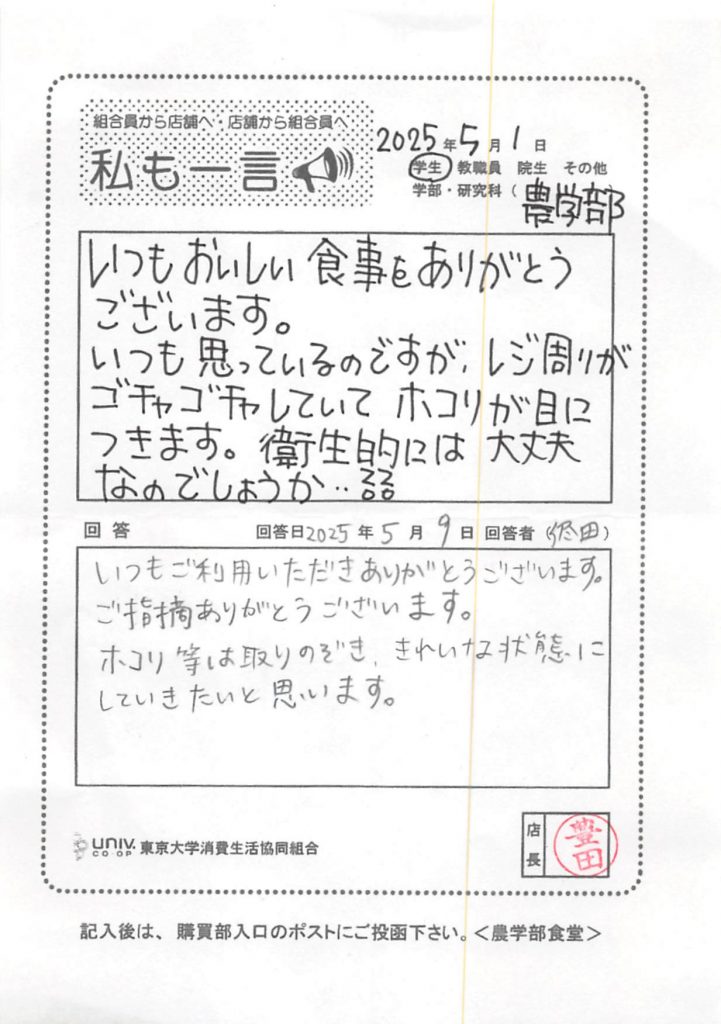 組合員から店舗へ・店舗から組合員へ
私も一言
2025年5月1日
学生 教職員 院生 その他
学部・研究科（農学部
いつもおいしい食事をありがとう
ございます。
いつも思っているのですが、レジ周りが
ゴチャゴチャしていてホコリが目に
つきます。衛生的には大丈夫
なのでしょうか…
回答 回答日2025年5月9日 回答者（ 田）
いつもご利用いただきありがとうございます。
ご指摘ありがとうございます。
ホコリ等は取りのぞき、きれいな状態に
していきたいと思います。
UNIV.
CO-OP
東京大学消費生活協同組合
店長
豊田
記入後は、購買部入口のポストにご投函下さい。＜農学部食堂＞